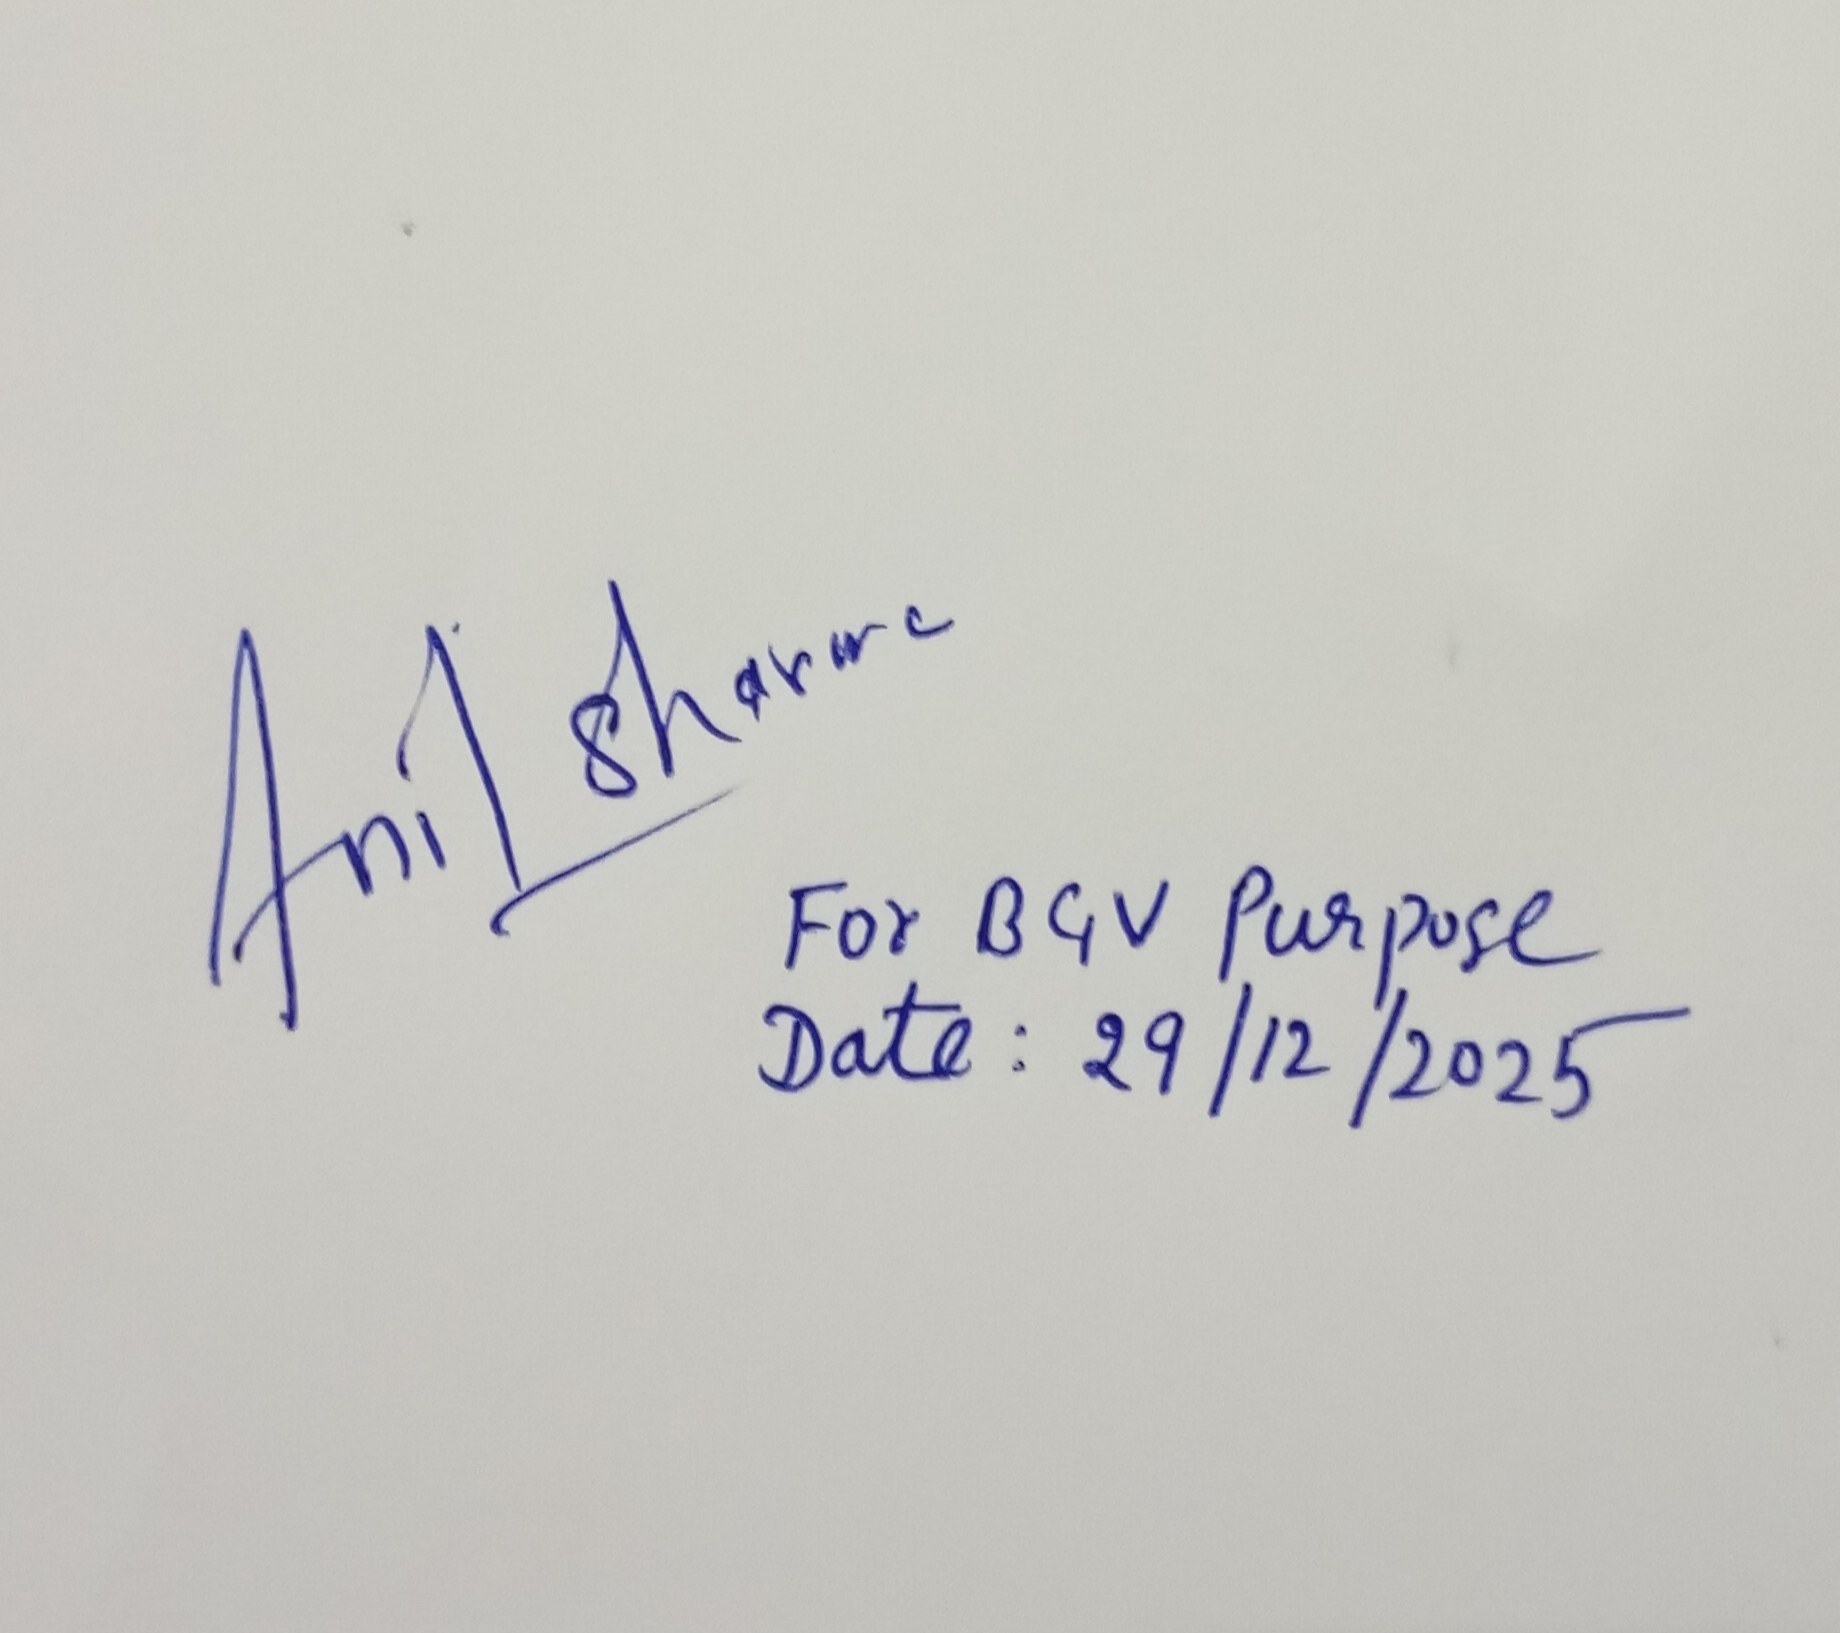 Anil Sharma
For BGV Purpose
Date: 29/12/2025